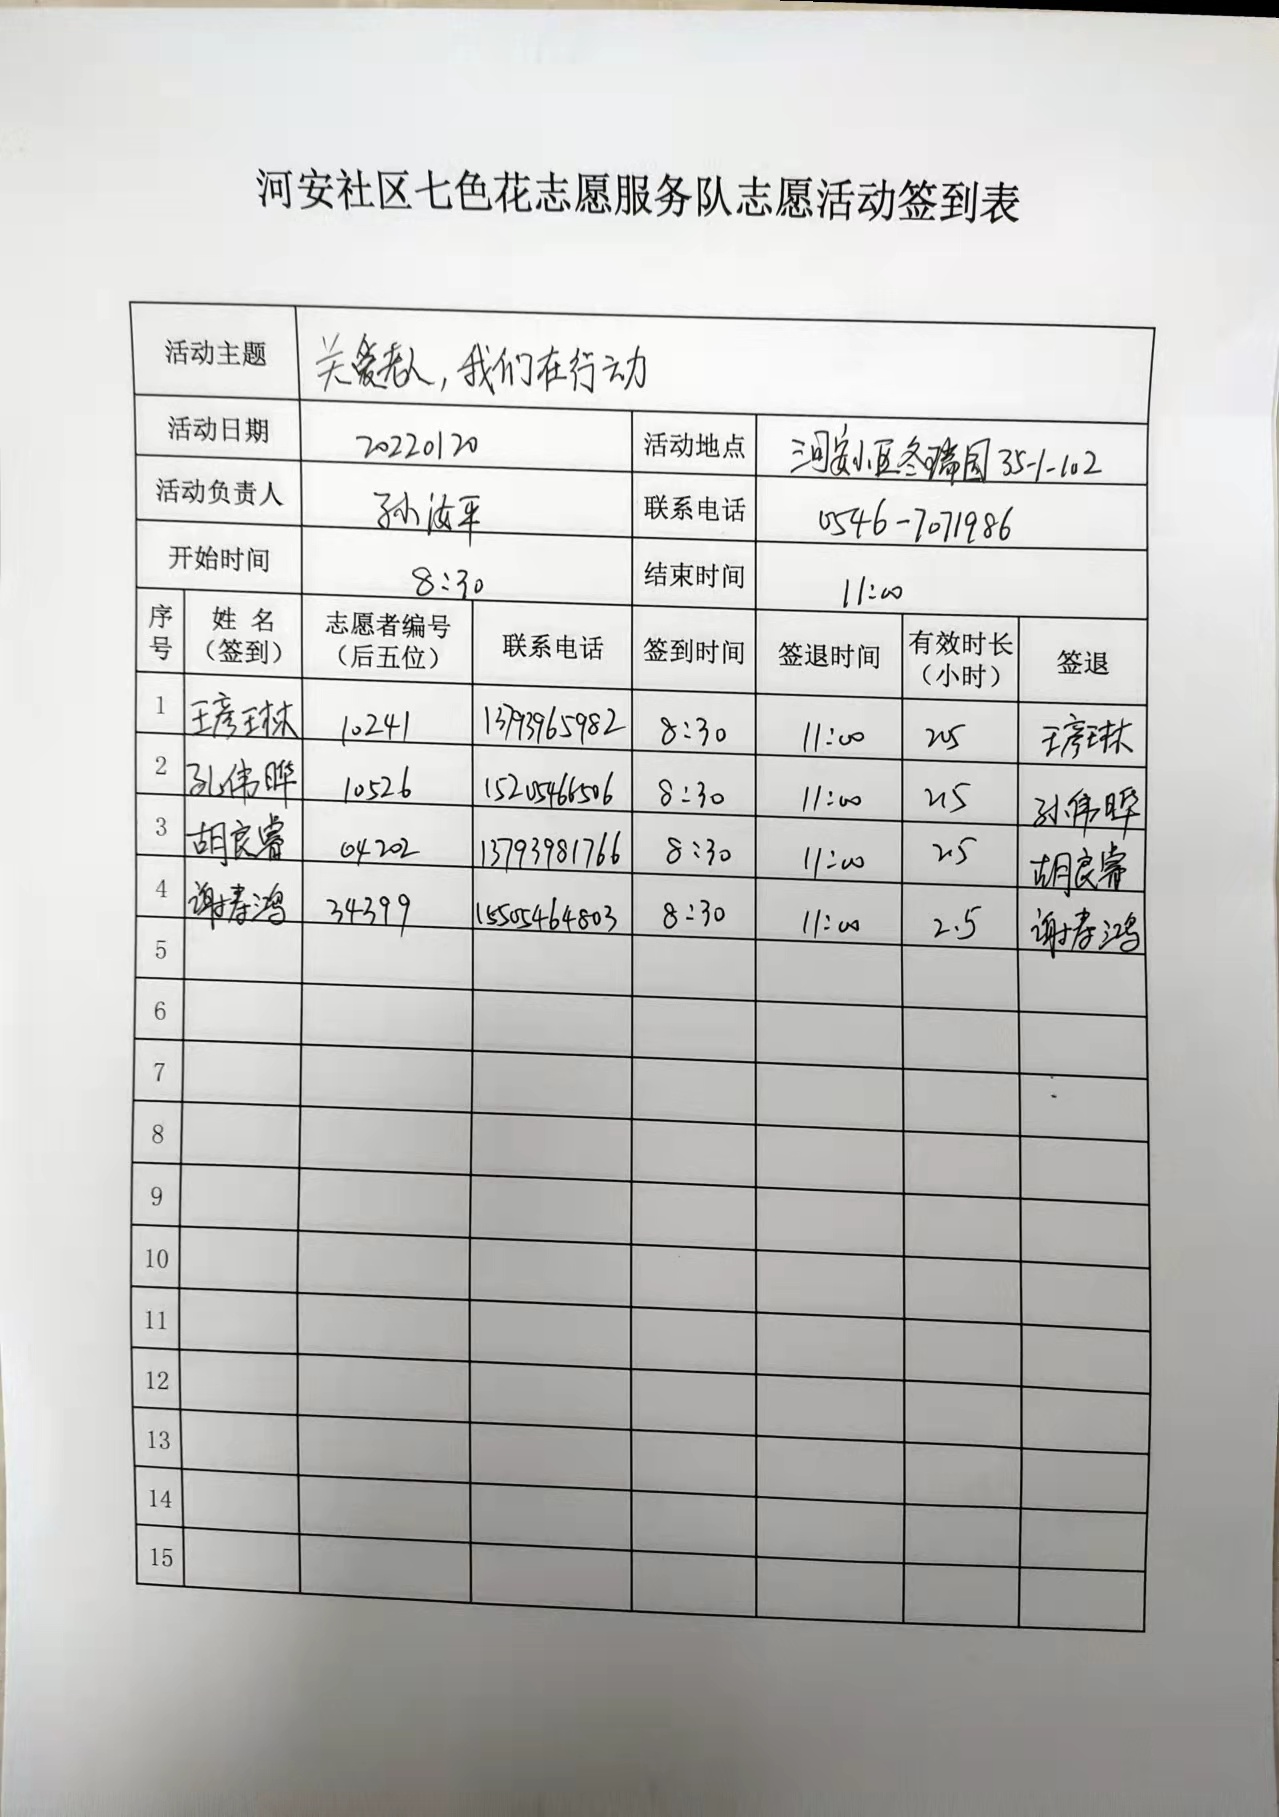 河安社区七色花志愿服务队志愿活动签到表
活动主题 关爱老人，我们在行动
活动日期 20220120 活动地点 河安小区冬瑞园35-1-102
活动负责人 孙汝平 联系电话 0546-7071986
开始时间 8:30 结束时间 11:00
序号 姓名（签到） 志愿者编号（后五位） 联系电话 签到时间 签退时间 有效时长（小时） 签退
1 王彦琳 10241 13793965982 8:30 11:00 2.5 王彦琳
2 孙伟晔 10526 15205466506 8:30 11:00 2.5 孙伟晔
3 胡良睿 04202 13793981766 8:30 11:00 2.5 胡良睿
4 谢春鸿 34399 15505464803 8:30 11:00 2.5 谢春鸿
5
6
7
8
9
10
11
12
13
14
15